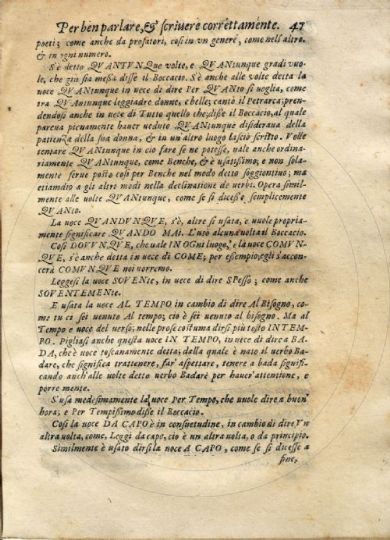 Per ben parlare, & scriuere correttamente. 47
poeti; come anche da prosatori, cosi in vn genere, come nell'altro,
& in ogni numero.
S'è detto QVANTVNQue volte, e QVANtunque gradi vuo-
le, che giù sia messa disse il Boccacio. S'è anche alle volte detta la
voce QVANtunque in vece di dire Per QVANto si voglia, come
tra QVANtunque leggiadre donne, e belle; cantò il Petrarca; pren-
dendosi anche in vece di Tutto quello che; disse il Boccacio, al quale
pareua pienamente hauer veduto QVANtunque disideraua della
patienza della sua donna, & in vn altro luogo lasciò scritto. Volle
tentare QVANtunque in ciò fare se ne potesse, vale anche ordina-
riamente QVANtunque, come Benche, & è vsatissimo; e non sola-
mente serue posto cosi per Benche nel modo detto soggiontiuo; ma
etiamdio a gli altri modi nella declinatione de verbi. Opera simil-
mente alle volte QVANtunque, come se si dicesse semplicemente
QVANto.
La voce QVANDVNQVE, s'è, altre si vsata, e vuole propria-
mente significare QVANDO MAI. L'vso alcuna volta il Boccacio.
Cosi DOVVNQVE, che vale IN OGni luogo, e la voce COMVN-
QVE, s'è anche detta in vece di COME; per esempio, egli s'accon-
cerà COMVNQVE noi vorremo.
Leggesi la voce SOVENte, in vece di dire SPesso; come anche
SOVENTEMENte.
E vsata la voce AL TEMPO in cambio di dire Al Bisogno, co-
me tu ci sei venuto Al tempo; ciò è sei venuto al bisogno. Ma al
Tempo è voce del verso; nelle prose costuma dirsi più tosto IN TEM-
PO. Pigliasi anche questa voce IN TEMPO, in vece di dire a BA-
DA, che è voce toscanamente detta; dalla quale è nato il verbo Ba-
dare, che significa trattenere, far' aspettare, tenere a bada signifi-
cando anch'alle volte detto verbo Badare per hauer'attentione, e
porre mente.
S'vsa medesimamente la voce Per Tempo, che vuole dire a buon'
hora; e Per Tempissimo disse il Boccacio.
Cosi la voce DA CAPO è in consuetudine, in cambio di dire Vn
altra volta, come, Leggi da capo, ciò è vn altra volta, o da principio.
Similmente è vsato dirsi la voce A CAPO, come se si dicesse a
fine,